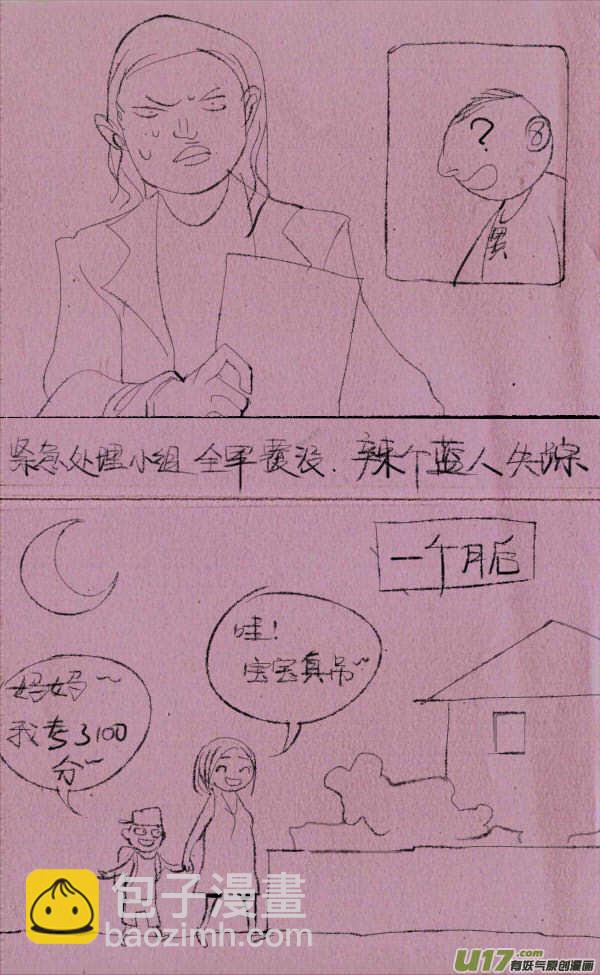 ?
男
紧急处理小组 全军覆没.辣个蓝人失踪
一个月后
哇!
宝宝真吊~
妈妈~
我考了100
分~
包子漫畫
baozimh.com
U17.com
有妖气原创漫画